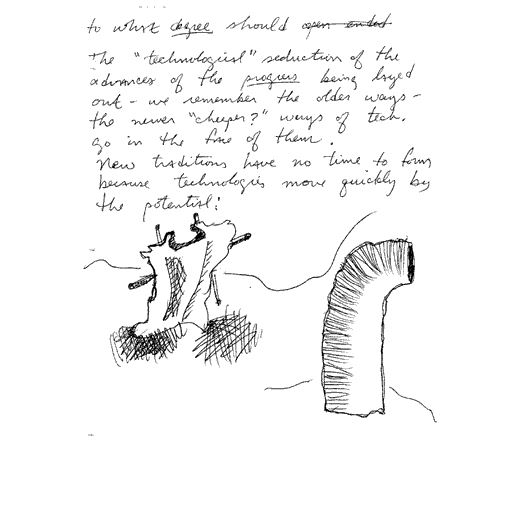 to what degree should open ended
The "technological" seduction of the
advances of the progress being layed
out - we remember the older ways -
the newer "cheeper?" ways of tech.
go in the face of them.
New traditions have no time to form
because technologies move quickly by
the potential: